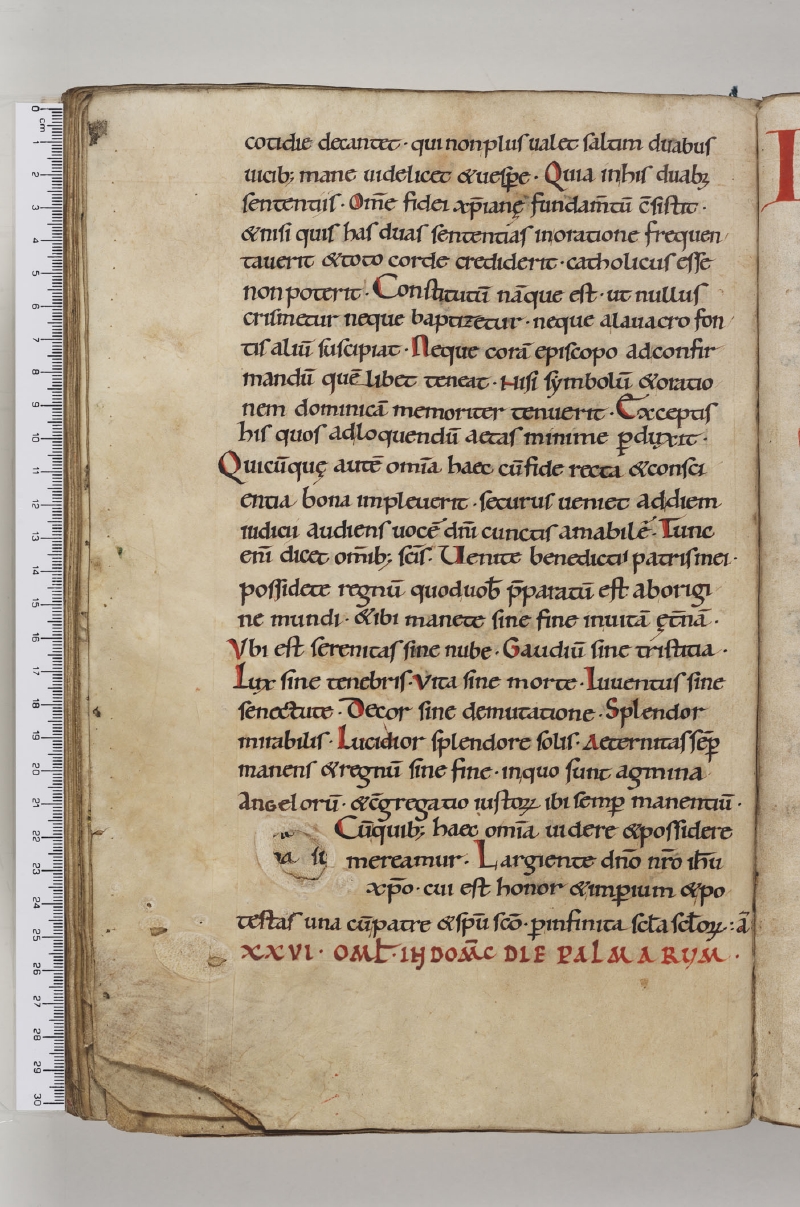 cotidie decantet · qui non plus ualet saltim duabus
uicib; mane uidelicet & uesp̄e · Quia in his duab;
sententiis · Om̄e fidei xp̄ianę fundam̄tū c̄sistit ·
& nisi quis has duas sententias in oratione frequen
tauerit & toto corde crediderit · catholicus esse
non poterit · Constitutū nāque est · ut nullus
crismetur neque baptizetur · neque a lauacro fon
tis aliū suscipiat · Neque corā episcopo ad confir
mandū quē libet teneat · Nisi symbolū & oratio
nem dominicā memoriter tenuerit · Exceptis
his quos ad loquendū aetas minime ꝑduxit ·
Quicūquę autē om̄ia haec cū fide recta & consci
entia bona impleuerit · securus ueniet ad diem
iudicii audiens uocē dn̄i cunctis amabilē · Tunc
eni̅ dicet om̄ib; sc̄is · Uenite benedicti patris mei ·
possidete regnū quod uob̄ p̄paratū est ab origi
ne mundi · & ibi manete sine fine in uitā ęt̄nā ·
Vbi est serenitas sine nube · Gaudiū sine tristitia ·
Lux sine tenebris · Vita sine morte · Iuuentus sine
senectute · Decor sine demutatione · Splendor
mirabilis · Lucidior splendore solis · Aeternitas sēꝑ
manens & regnū sine fine · in quo sunt agmina
Angelorū · & c̄gregatio iustoꝝ ibi semꝑ manentiū ·
Cū quib; haec om̄ia uidere & possidere
mereamur · Largiente dn̄o nr̄o ih̄u
xp̄o · cui est honor & imꝑium & po
testas una cū patre & sp̄u sc̄o · ꝑ infinita scl̄a scl̄oꝝ : ā
XXVI · OML̄ · IN DOM̄C DIE PALMARUM ·